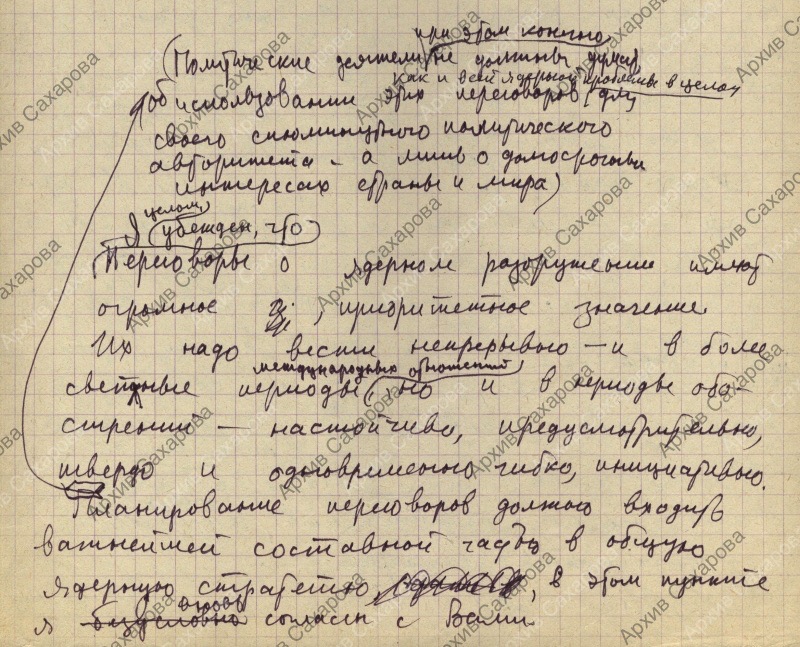 при этом конечно
(Политические деятели не должны думать
как и всей ядерной проблемы в целом,
об использовании этих переговоров, для
своего сиюминутного политического
авторитета – а лишь о долгосрочных
интересах страны и мира)
целом,
Я убежден, что
Переговоры о ядерном разоружении имеют
огромное , приоритетное значение.
Их надо вести непрерывно – и в более
международных отношений
светлые периоды, но и в периоды обо-
стрений – настойчиво, предусмотрительно,
твердо и одновременно гибко, инициативно.
Планирование переговоров должно входить
важнейшей составной частью в общую
ядерную стратегию, в этом пункте
вновь
я безусловно согласен с Вами.
Архив Сахарова